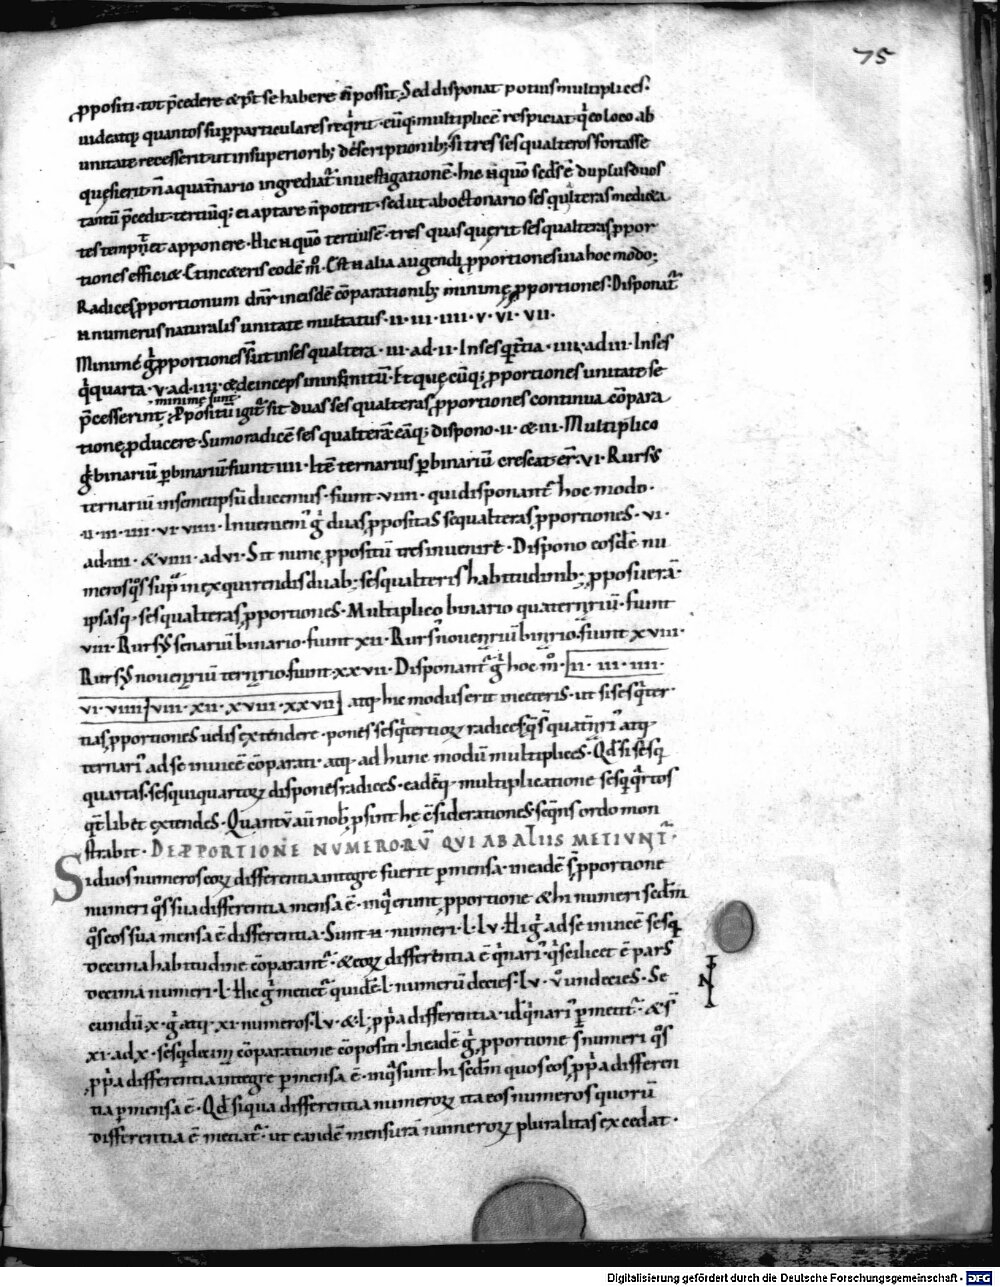 75
ppositi· tot pcedere & pt se habere n possit, Sed disponat potius multiplices·
uideatq; quantos supparticulares reqrit· cuiq; multiplice respiciat· q eo loco ab
unitate recesserit· ut in superiorib; descriptionib; si tres sesqualteros fortasse
quesierit· n a quatnario ingrediat inuestigatione· hic n quo sed s e duplus duos
tantu pcedit· tertiuq; ei aptare n poterit· sed ut ab octonario sesqualteras medieta
tes tempnet apponere· Hic n quo tertius e· tres quas querit sesqualteras ppor
tiones efficiet· Et in ceteris eode m· Est n alia augendi pportiones uia hoc modo;
Radices pportionum dnr in eisde coparationib; minime pportiones· Disponat
n numerus naturalis unitate multatus· II· III· IIII· V· VI· VII·
Minime g pportiones st in sesqualtera· III· ad· II· In sesqrtia· IIII· ad III· In ses
qquarta· V· ad· IIII· & deinceps in infinitu· Et que cuq; pportiones unitate se
minime sunt
pcesserint; Ppositu igit sit duas sesqualteras pportiones continua copara
tione pducere· Sumo radice sesqualtera eaq; dispono· II· & III· Multiplico
g binariu p binariu fiunt IIII· Ite ternarius p binariu crescat er· VI· Rurs
ternariu in semetipsu ducemus· fiunt· VIIII· qui disponant hoc modo·
II· III· IIII· VI· VIIII· Inuenim g duas ppositas sequalteras pportiones· VI·
ad· IIII· & VIIII· ad VI· Sit nunc ppositu tres inuenire· Dispono eosde nu
meros qs sup in exquirendis duab; sesqualteris habitudinib; pposuera·
ipsasq· sesqualteras pportiones· Multiplico binario quaternriu· fiunt
VIII· Rurs senariu binario· fiunt XII· Rurs nouenriu binrio· fiunt XVIII·
Rurs nouenriu ternrio· fiunt· XXVII· Disponant g hoc m· II· III· IIII·
VI· VIIII VIII· XII· XVIII· XXVII atq· hic modus erit in ceteris· ut si sesqter
tias pportiones uelis extendere· pones sesqtertior radices· qs quatnri atq·
ternari ad se inuice coparati· atq· ad hunc modu multiplices· Qd si sesq
quartas· sesquiquartor dispones radices· eadeq· multiplicatione sesqqrtos
qt libet extendes· Quantu au nob psint he csiderationes· seqns ordo mon
strabit· DE PPORTIONE NUMERORU QUI AB ALIIS METIUNT·
Si duos numeros eor differentia integre fuerit pmensa· in eade s pportione
numeri qs sua differentia mensa e· in q erunt pportione & hi numeri sedm
qs eos sua mensa e differentia· Sunt n· numeri· L· LV· Hi g ad se inuice sesq
decima habitudine coparant· & eor differentia e qnari· q scilicet e pars
decima numeri· L· Hic g metiet quide· L· numeru decies· LV· u undecies· Se
cundu· X· g atq· XI· numeros· LV· & L· ppa differentia· id qnari pmetit· & s
XI· ad X· sesqdecim coparatione copositi· In eade g pportione s numeri qs
ppa differentia integre pmensa e· in q sunt hi sedm quos eos ppa differen
tia pmensa e· Qd si qua differentia numeror ita eos numeros quoru
differentia e metiat· ut eande mensura numeror pluralitas excedat·
Digitalisierung gefördert durch die Deutsche Forschungsgemeinschaft - DFG